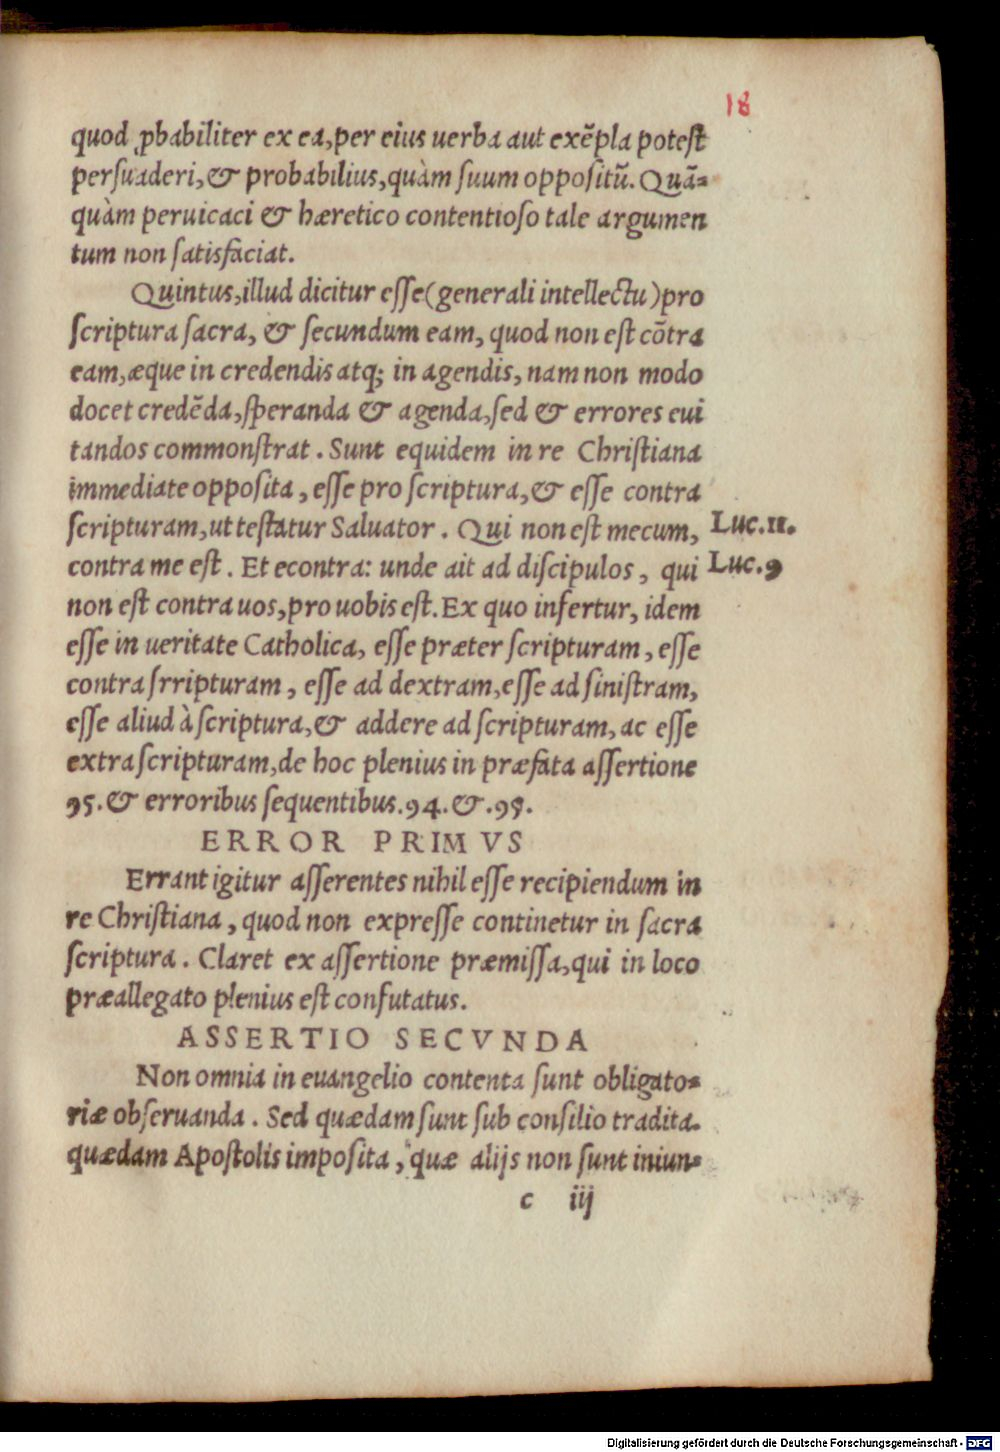 18
quod ꝓbabiliter ex ea, per eius uerba aut exẽpla potest
persuaderi, & probabilius, quàm suum oppositũ. Quã=
quàm peruicaci & hæretico contentioso tale argumen
tum non satisfaciat.
Quintus, illud dicitur esse (generali intellectu) pro
scriptura sacra, & secundum eam, quod non est cõtra
eam, æque in credendis atq; in agendis, nam non modo
docet credẽda, speranda & agenda, sed & errores eui
tandos commonstrat. Sunt equidem in re Christiana
immediate opposita, esse pro scriptura, & esse contra
scripturam, ut testatur Saluator. Qui non est mecum, Luc. 11.
contra me est. Et econtra: unde ait ad discipulos, qui Luc. 9
non est contra uos, pro uobis est. Ex quo infertur, idem
esse in ueritate Catholica, esse præter scripturam, esse
contra srripturam, esse ad dextram, esse ad sinistram,
esse aliud à scriptura, & addere ad scripturam, ac esse
extra scripturam, de hoc plenius in præfata assertione
95. & erroribus sequentibus. 94. &. 95.
ERROR PRIMVS
Errant igitur asserentes nihil esse recipiendum in
re Christiana, quod non expresse continetur in sacra
scriptura. Claret ex assertione præmissa, qui in loco
præallegato plenius est confutatus.
ASSERTIO SECVNDA
Non omnia in euangelio contenta sunt obligato=
riæ obseruanda. Sed quædam sunt sub consilio tradita.
quædam Apostolis imposita, quæ alijs non sunt iniun=
c iij
Digitalisierung gefördert durch die Deutsche Forschungsgemeinschaft - DFG